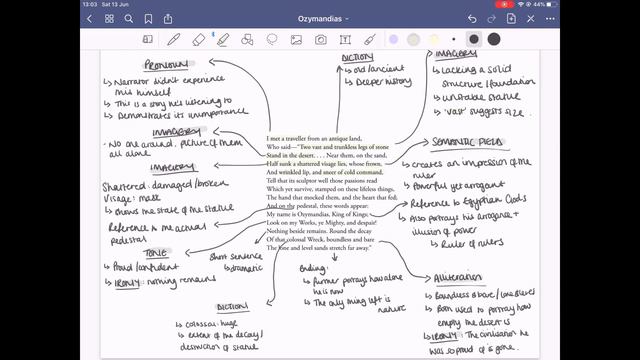 13:03 Sat 13 Jun
44%
Ozymandias
PRONOUN
↳ Narrator didn't experience
this himself
↳ This is a story he's listening to
↳ Demonstrates its unimportance
IMAGERY
↳ No one around, picture of them
all alone
IMAGERY
Shattered: damaged/broken
Visage: mask
↳ shows the state of the statue
Reference to the actual
pedestal
TONE
↳ Proud/confident
↳ IRONY: nothing remains
Short sentence
↳ dramatic
DICTION
↳ colossal: huge
↳ extent of the decay/
destruction of statue
DICTION
↳ old/ancient
↳ Deeper history
I met a traveller from an antique land,
Who said—"Two vast and trunkless legs of stone
Stand in the desert. . . . Near them, on the sand,
Half sunk a shattered visage lies, whose frown,
And wrinkled lip, and sneer of cold command,
Tell that its sculptor well those passions read
Which yet survive, stamped on these lifeless things,
The hand that mocked them, and the heart that fed;
And on the pedestal, these words appear:
My name is Ozymandias, King of Kings;
Look on my Works, ye Mighty, and despair!
Nothing beside remains. Round the decay
Of that colossal Wreck, boundless and bare
The lone and level sands stretch far away."
Ending:
↳ further portrays how alone
he is now
↳ The only thing left is
nature
IMAGERY
↳ Lacking a solid
structure/foundation
↳ unstable statue
↳ 'vast' suggests size
SEMANTIC FIELD
↳ creates an impression of the
ruler
↳ Powerful yet arrogant
↳ Reference to Egyptian Gods
↳ Also portrays his arrogance +
illusion of power
↳ Ruler of rulers
Alliteration
↳ Boundless & bare / lone & level
↳ Both used to portray how
empty the desert is
↳ IRONY: The civilisation he
was so proud of is gone.